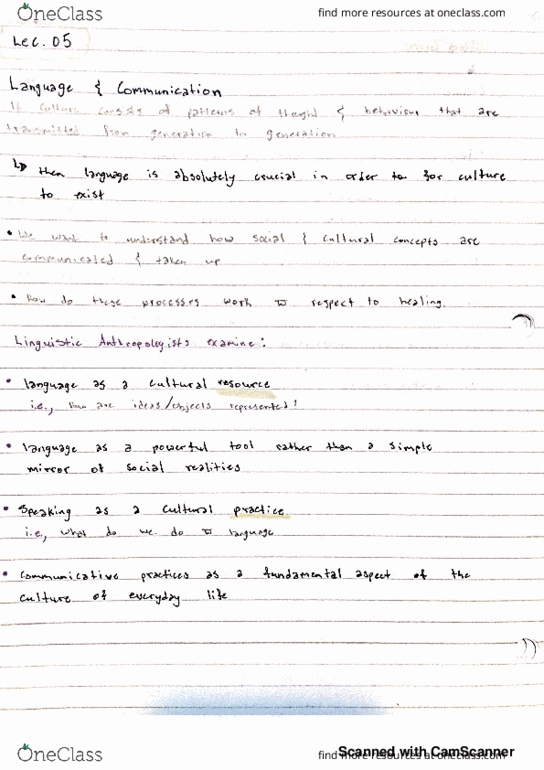 OneClass
find more resources at oneclass.com
Lec. 05
Language & Communication
If culture consists of patterns of thought & behaviour that are
transmitted from generation to generation
↳ then language is absolutely crucial in order to for culture
to exist
• We want to understand how social & cultural concepts are
communicated & taken up
• How do these processes work w respect to healing.
Linguistic Anthropologists examine:
• language as a cultural resource
i.e., how are ideas/objects represented?
• language as a powerful tool rather than a simple
mirror of social realities
• Speaking as a cultural practice
i.e, what do we do w language
• communicative practices as a fundamental aspect of the
culture of everyday life
OneClass
find more resources at oneclass.com
Scanned with CamScanner